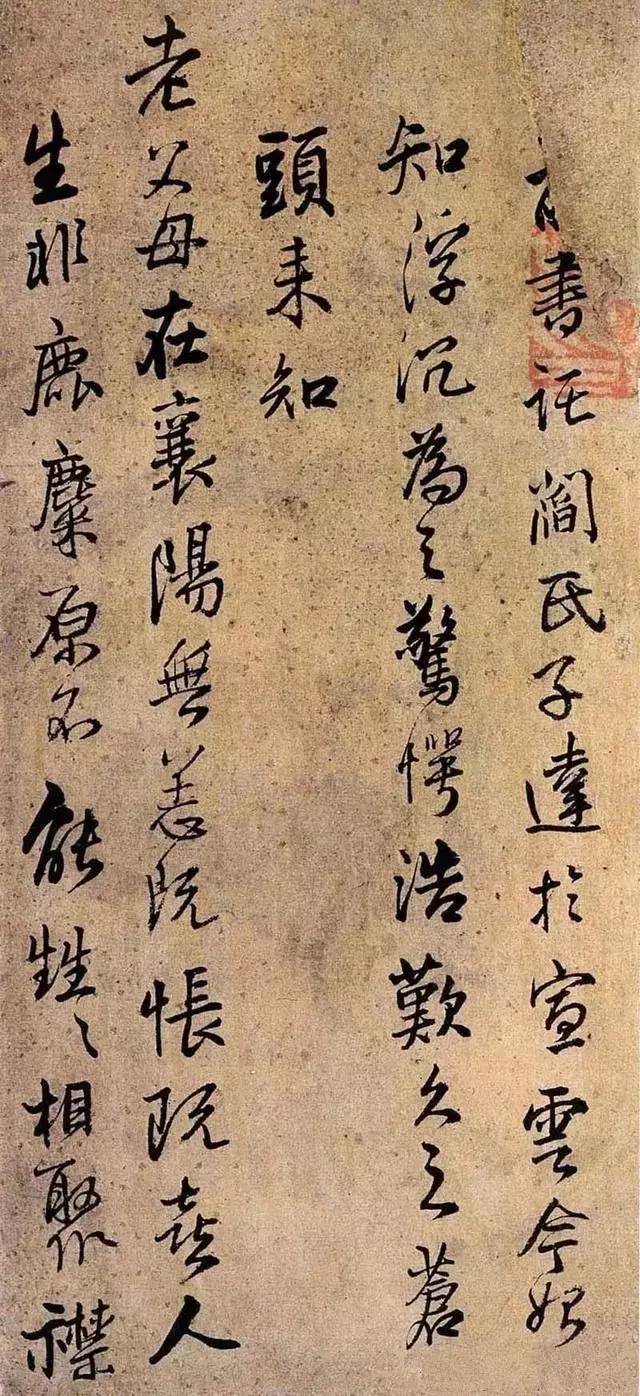 書託閻氏子達於宣雲今始
知浮沉為之驚愕浩歎久之蒼
頭來知
老父母在襄陽無恙既悵既喜人
生非麀麋原不能甡〻相聚襟